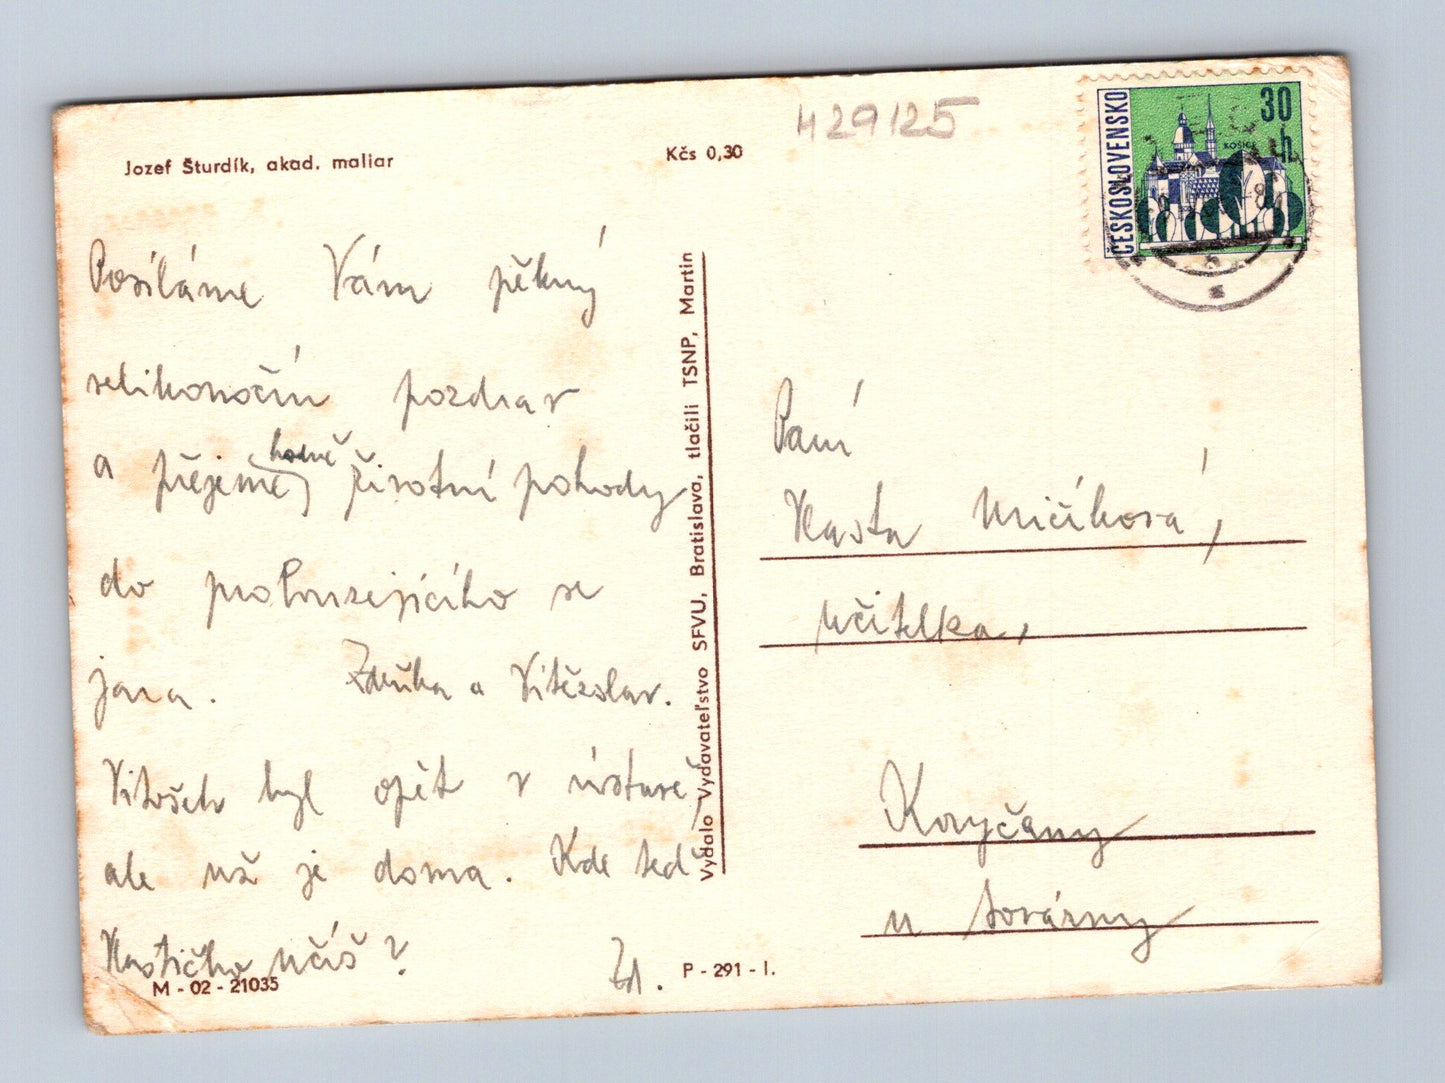 Jozef Šturdík, akad. maliar
Kčs 0,30
429125
ČESKOSLOVENSKO
30
h
KOŠICE
Posíláme Vám pěkný
velikonoční pozdrav
a přejeme hodně životní pohody
do probouzejícího se
jara. Zdeňka a Vítězslav.
Vítošek byl opět v ústavě,
ale už je doma. Kde teď
Vlastičko učíš? Zd.
M - 02 - 21035
P - 291 - I.
Vydalo Vydavateľstvo SFVU, Bratislava, tlačili TSNP, Martin
Paní
Vlasta Mičíková,
učitelka,
Koryčany
u továrny